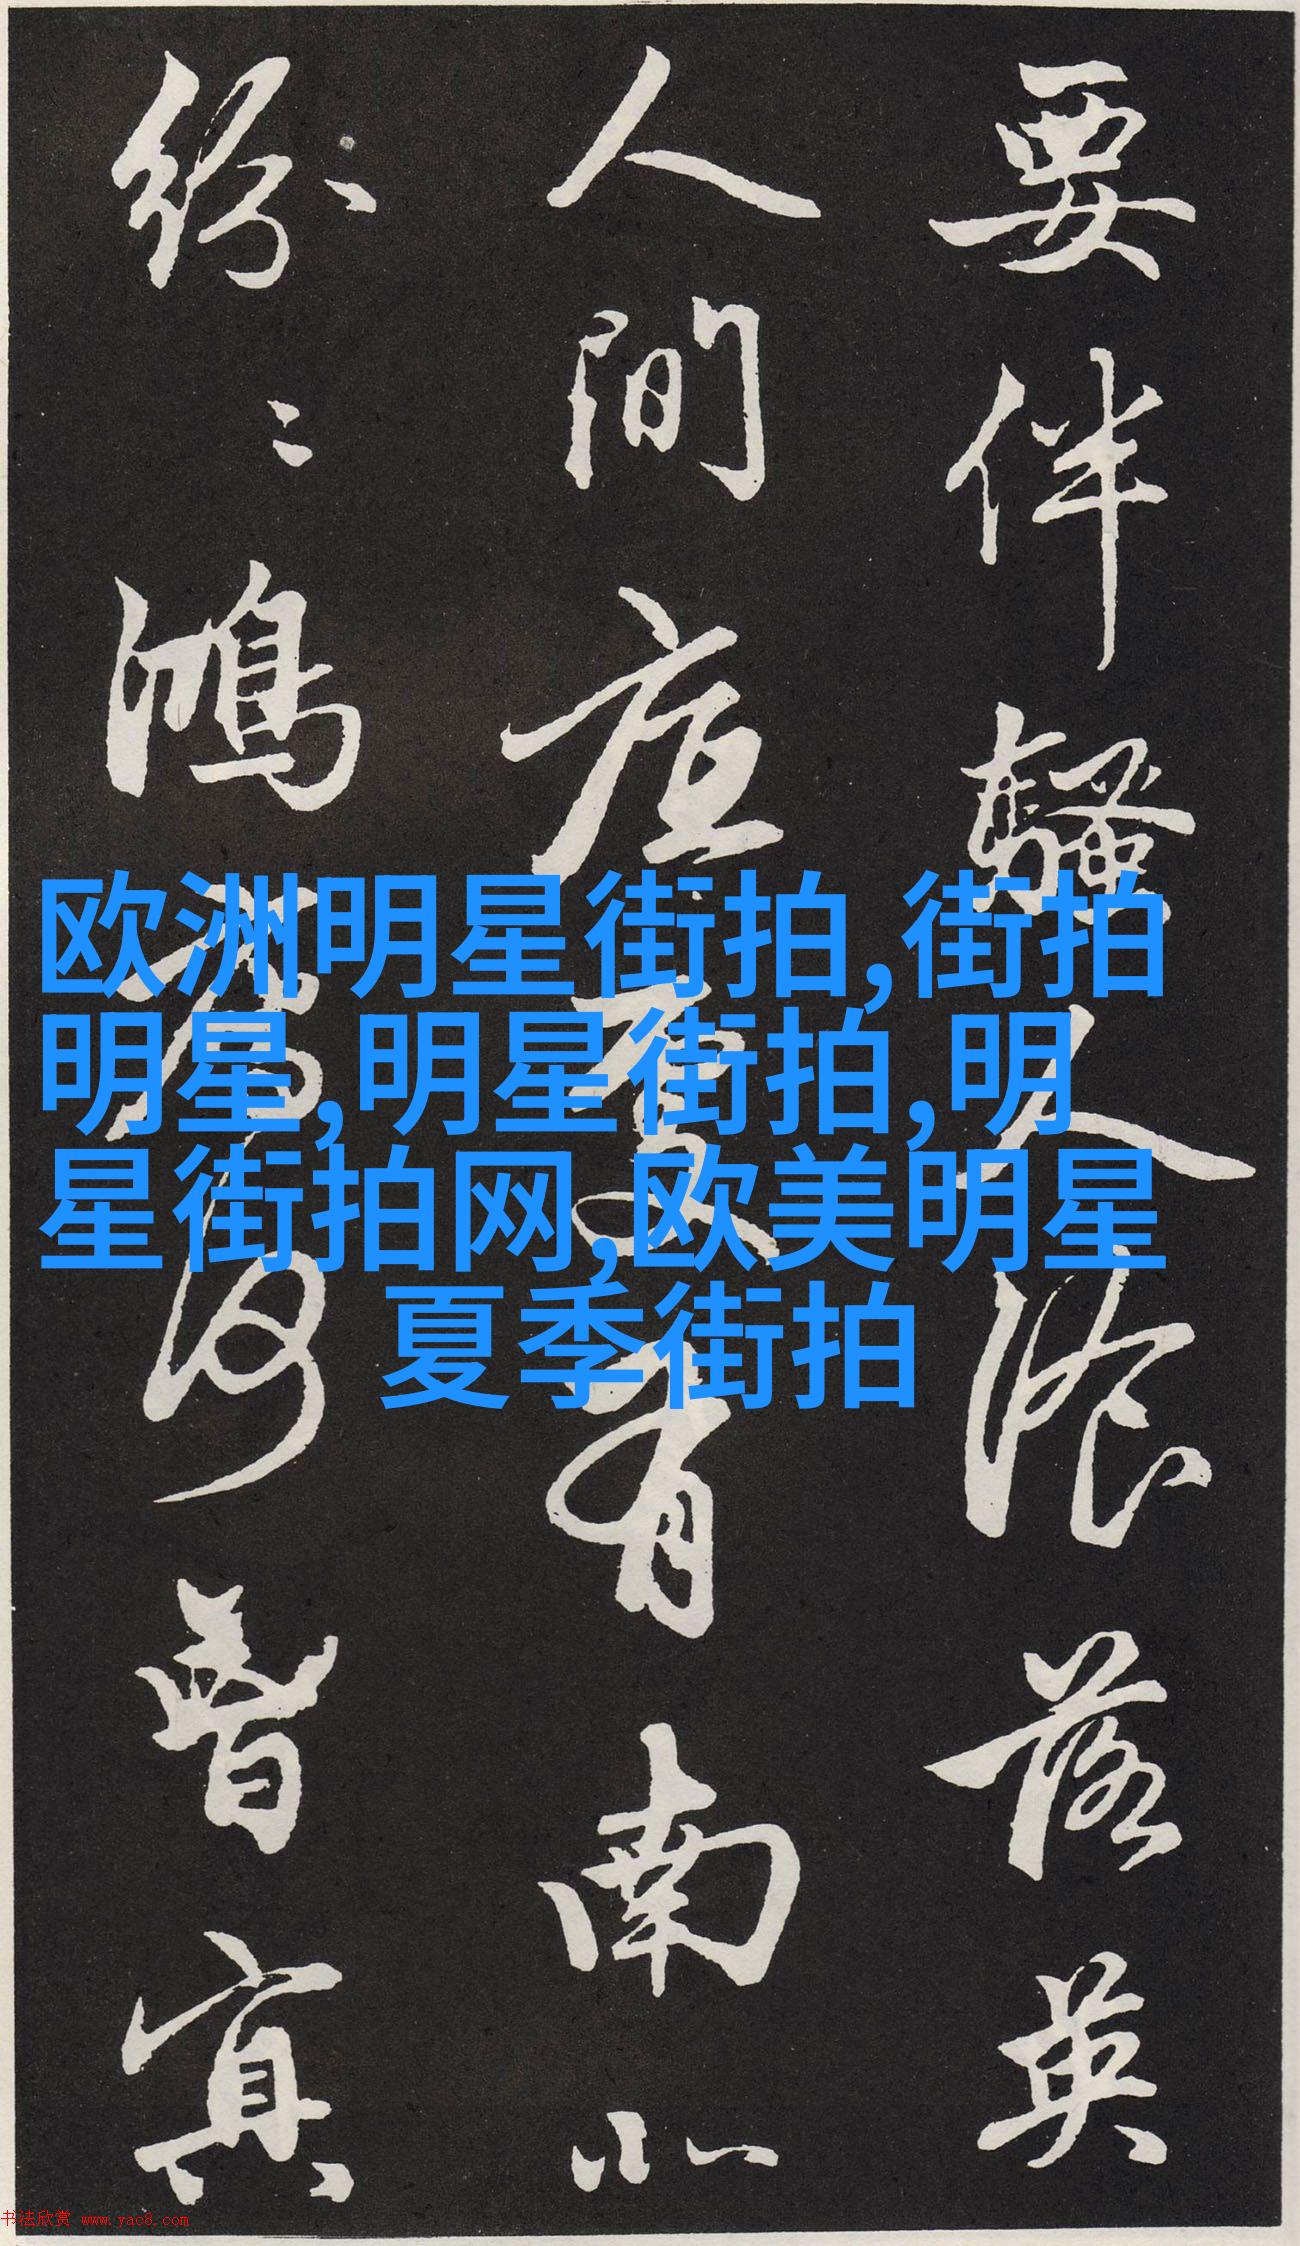 要伴騷人湌落英
人間底處有南北
紛〻鴻雁何曾冥
欧洲明星街拍,街拍
明星,明星街拍,明
星街拍网,欧美明星
夏季街拍
书法欣赏 www.yac8.com